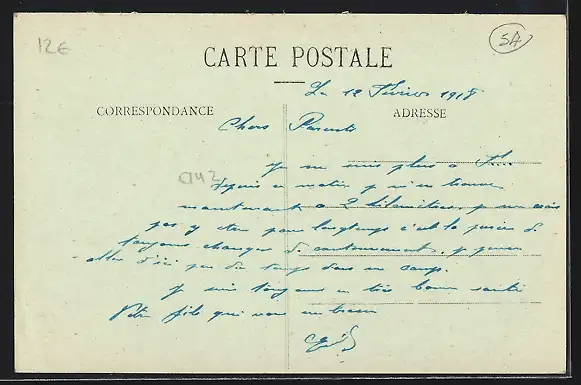 12€
5A
CARTE POSTALE
Le 12 Février 1918
CORRESPONDANCE
ADRESSE
Chers Parents
Je ne suis plus a
depuis ce matin je m'en trouve
maintenant a 2 kilomètres je ne crois
pas y être pour longtemps c'est la
toujours changer de cantonnement
aller d'ici peu de temps dans un camp.
Je suis toujours en très bonne santé
Votre fils qui vous